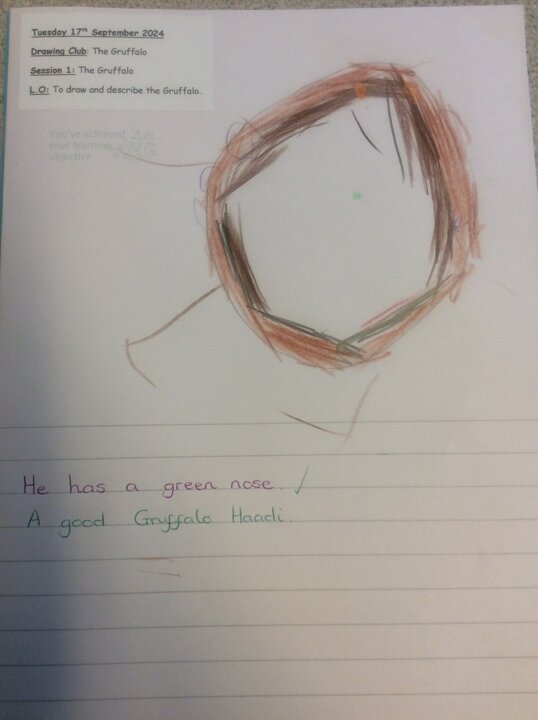 Tuesday 17th September 2024
Drawing Club: The Gruffalo
Session 1: The Gruffalo
L.O: To draw and describe the Gruffalo.
You've achieved
your learning
objective
He has a green nose. ✓
A good Gruffalo Haadi.